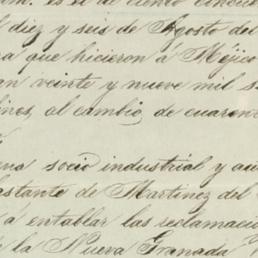 es el de ciento cincuen
l diez y seis de Agosto del
ra que hicieron á Méjico
an veinte y nueve mil s
inos, al cambio de cuaren
ena socio industrial y au
astante de Martinez del
a entablar las reclamacio
e la Nueva Granada